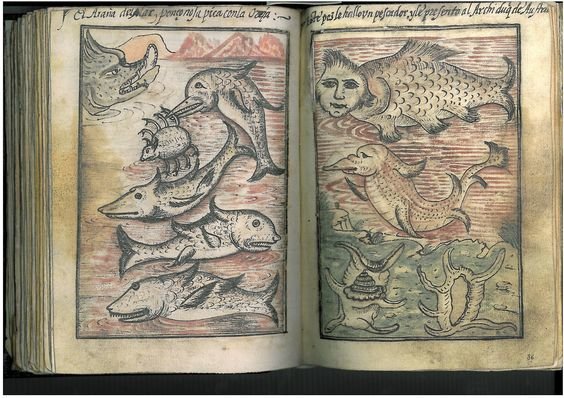 y El Araña del Mar, ponçoñosa pica con la
este pes lo hallo vn pescador, y le presento al Archi duq de Austria
86